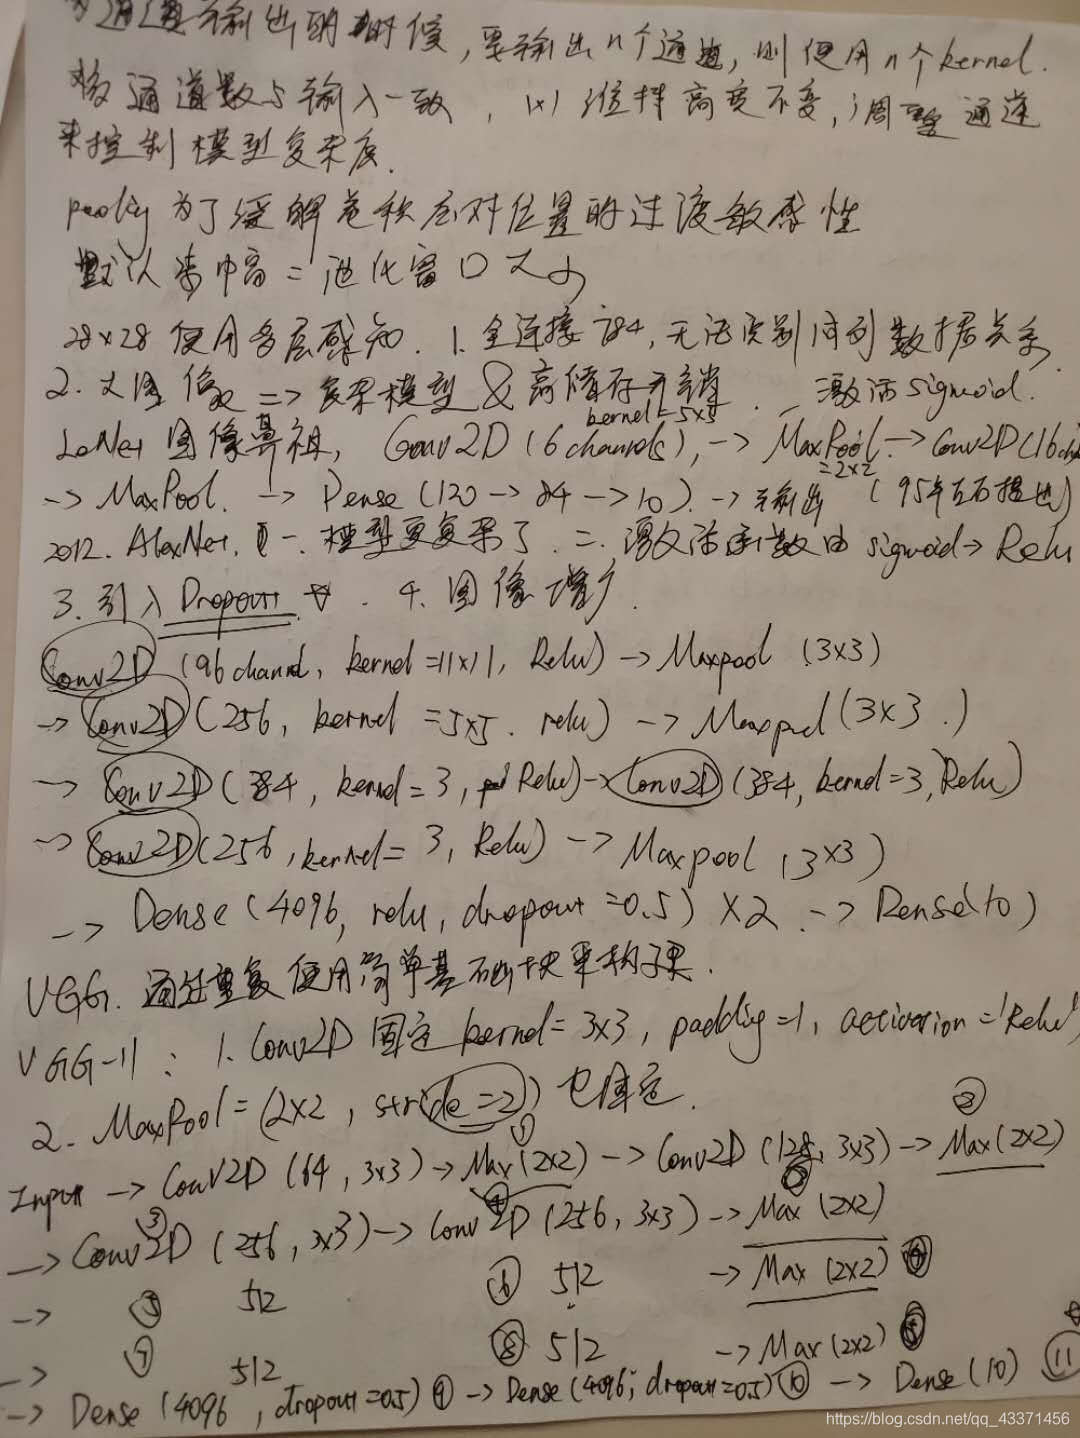 通道输出的时候,要输出n个通道,则使用n个kernel.
通道数与输入一致, 1x1维持高宽不变,调整通道
来控制模型复杂度.
pooling 为了缓解卷积层对位置的过渡敏感性
默认步幅 = 池化窗口大小
28×28 使用多层感知. 1. 全连接784,无法识别同列数据关系.
2. 大图像 => 复杂模型 & 高储存开销. 激活sigmoid.
kernel=5x5
LeNet 图像鼻祖, Conv2D (6 channels), -> MaxPool -> Conv2D(16ch
=2x2
-> MaxPool. -> Dense (120 -> 84 -> 10). -> 输出 (95年左右提出)
2012. AlexNet. 一. 模型更复杂了. 二. 激活函数由 sigmoid -> Relu
3. 引入Dropout. 4. 图像增广.
Conv2D (96 channel, kernel=11x11, Relu) -> Maxpool (3x3)
-> Conv2D (256, kernel=5x5. relu) -> Maxpool (3x3.)
-> Conv2D (384, kernel=3, Relu) -> Conv2D (384, kernel=3, Relu)
-> Conv2D (256, kernel=3, Relu) -> Maxpool (3x3)
-> Dense (4096, relu, dropout=0.5) X2 -> Dense(10)
VGG. 通过重复使用简单基础块来构
VGG-11 : 1. Conv2D 固定 kernel=3x3, padding=1, activation='Relu'
2. MaxPool=(2x2, stride=2) 也固定.
Input -> Conv2D (64, 3x3) -> Max(2x2) ① -> Conv2D (128, 3x3) -> Max(2x2) ②
-> Conv2D ③ (256, 3x3) -> Conv2D ④ (256, 3x3) -> Max (2x2)
-> ⑤ 512 ⑥ 512 -> Max (2x2)
-> ⑦ 512 ⑧ 512 -> Max (2x2)
-> Dense (4096, dropout=0.5) ⑨ -> Dense (4096, dropout=0.5) ⑩ -> Dense (10) ⑪
https://blog.csdn.net/qq_43371456